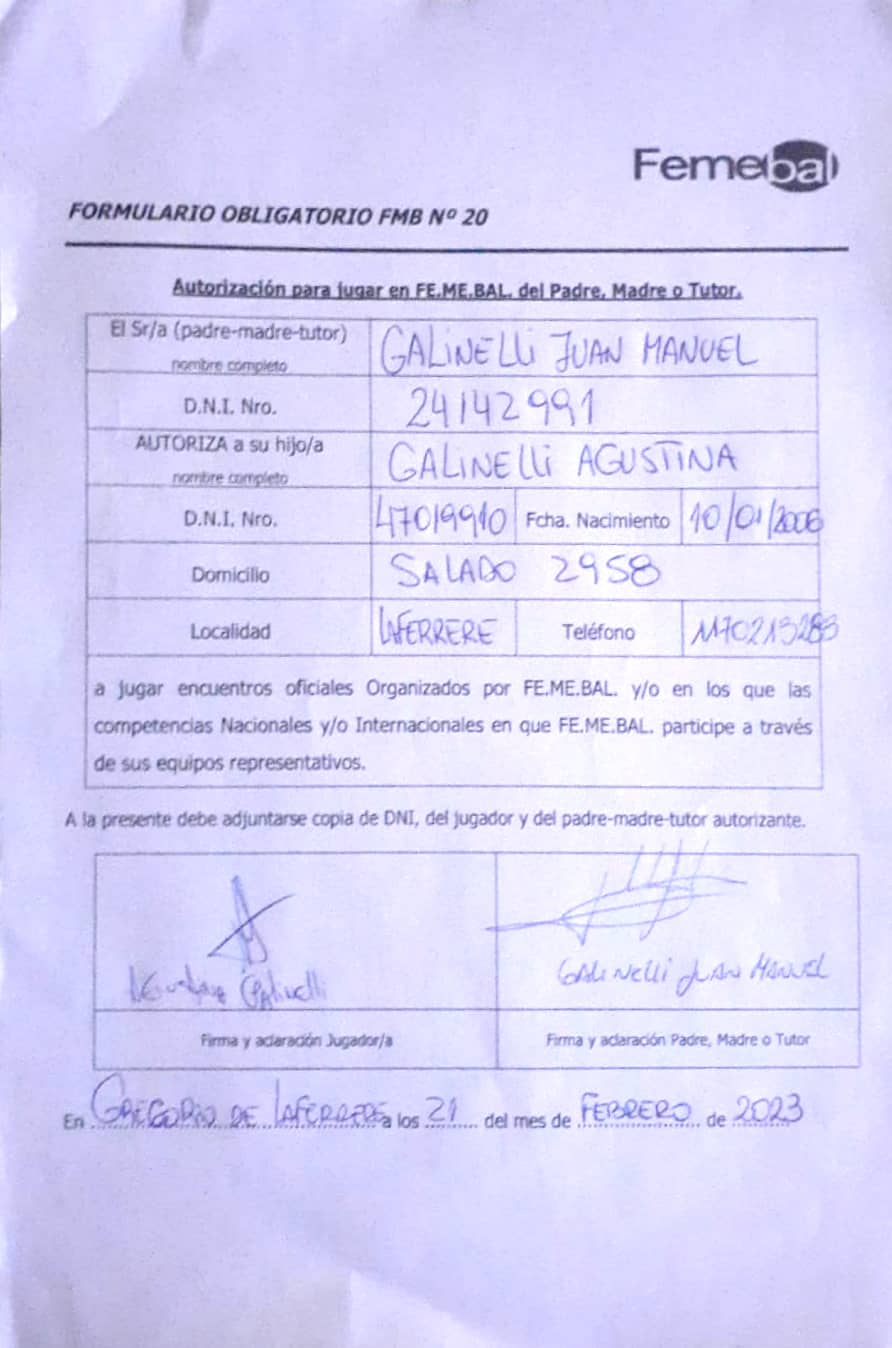 Femebal
FORMULARIO OBLIGATORIO FMB Nº 20
Autorización para jugar en FE.ME.BAL. del Padre, Madre o Tutor.
El Sr/a (padre-madre-tutor)
nombre completo
GALINELLI JUAN MANUEL
D.N.I. Nro.
24142991
AUTORIZA a su hijo/a
nombre completo
GALINELLI AGUSTINA
D.N.I. Nro. 47019910 Fcha. Nacimiento 10/01/2006
Domicilio SALADO 2958
Localidad LAFERRERE Teléfono 1170213283
a jugar encuentros oficiales Organizados por FE.ME.BAL. y/o en los que las
competencias Nacionales y/o Internacionales en que FE.ME.BAL. participe a través
de sus equipos representativos.
A la presente debe adjuntarse copia de DNI, del jugador y del padre-madre-tutor autorizante.
Galinelli GALINELLI JUAN MANUEL
Firma y aclaración Jugador/a Firma y aclaración Padre, Madre o Tutor
En GREGORIO DE LAFERRERE a los 21 del mes de FEBRERO de 2023